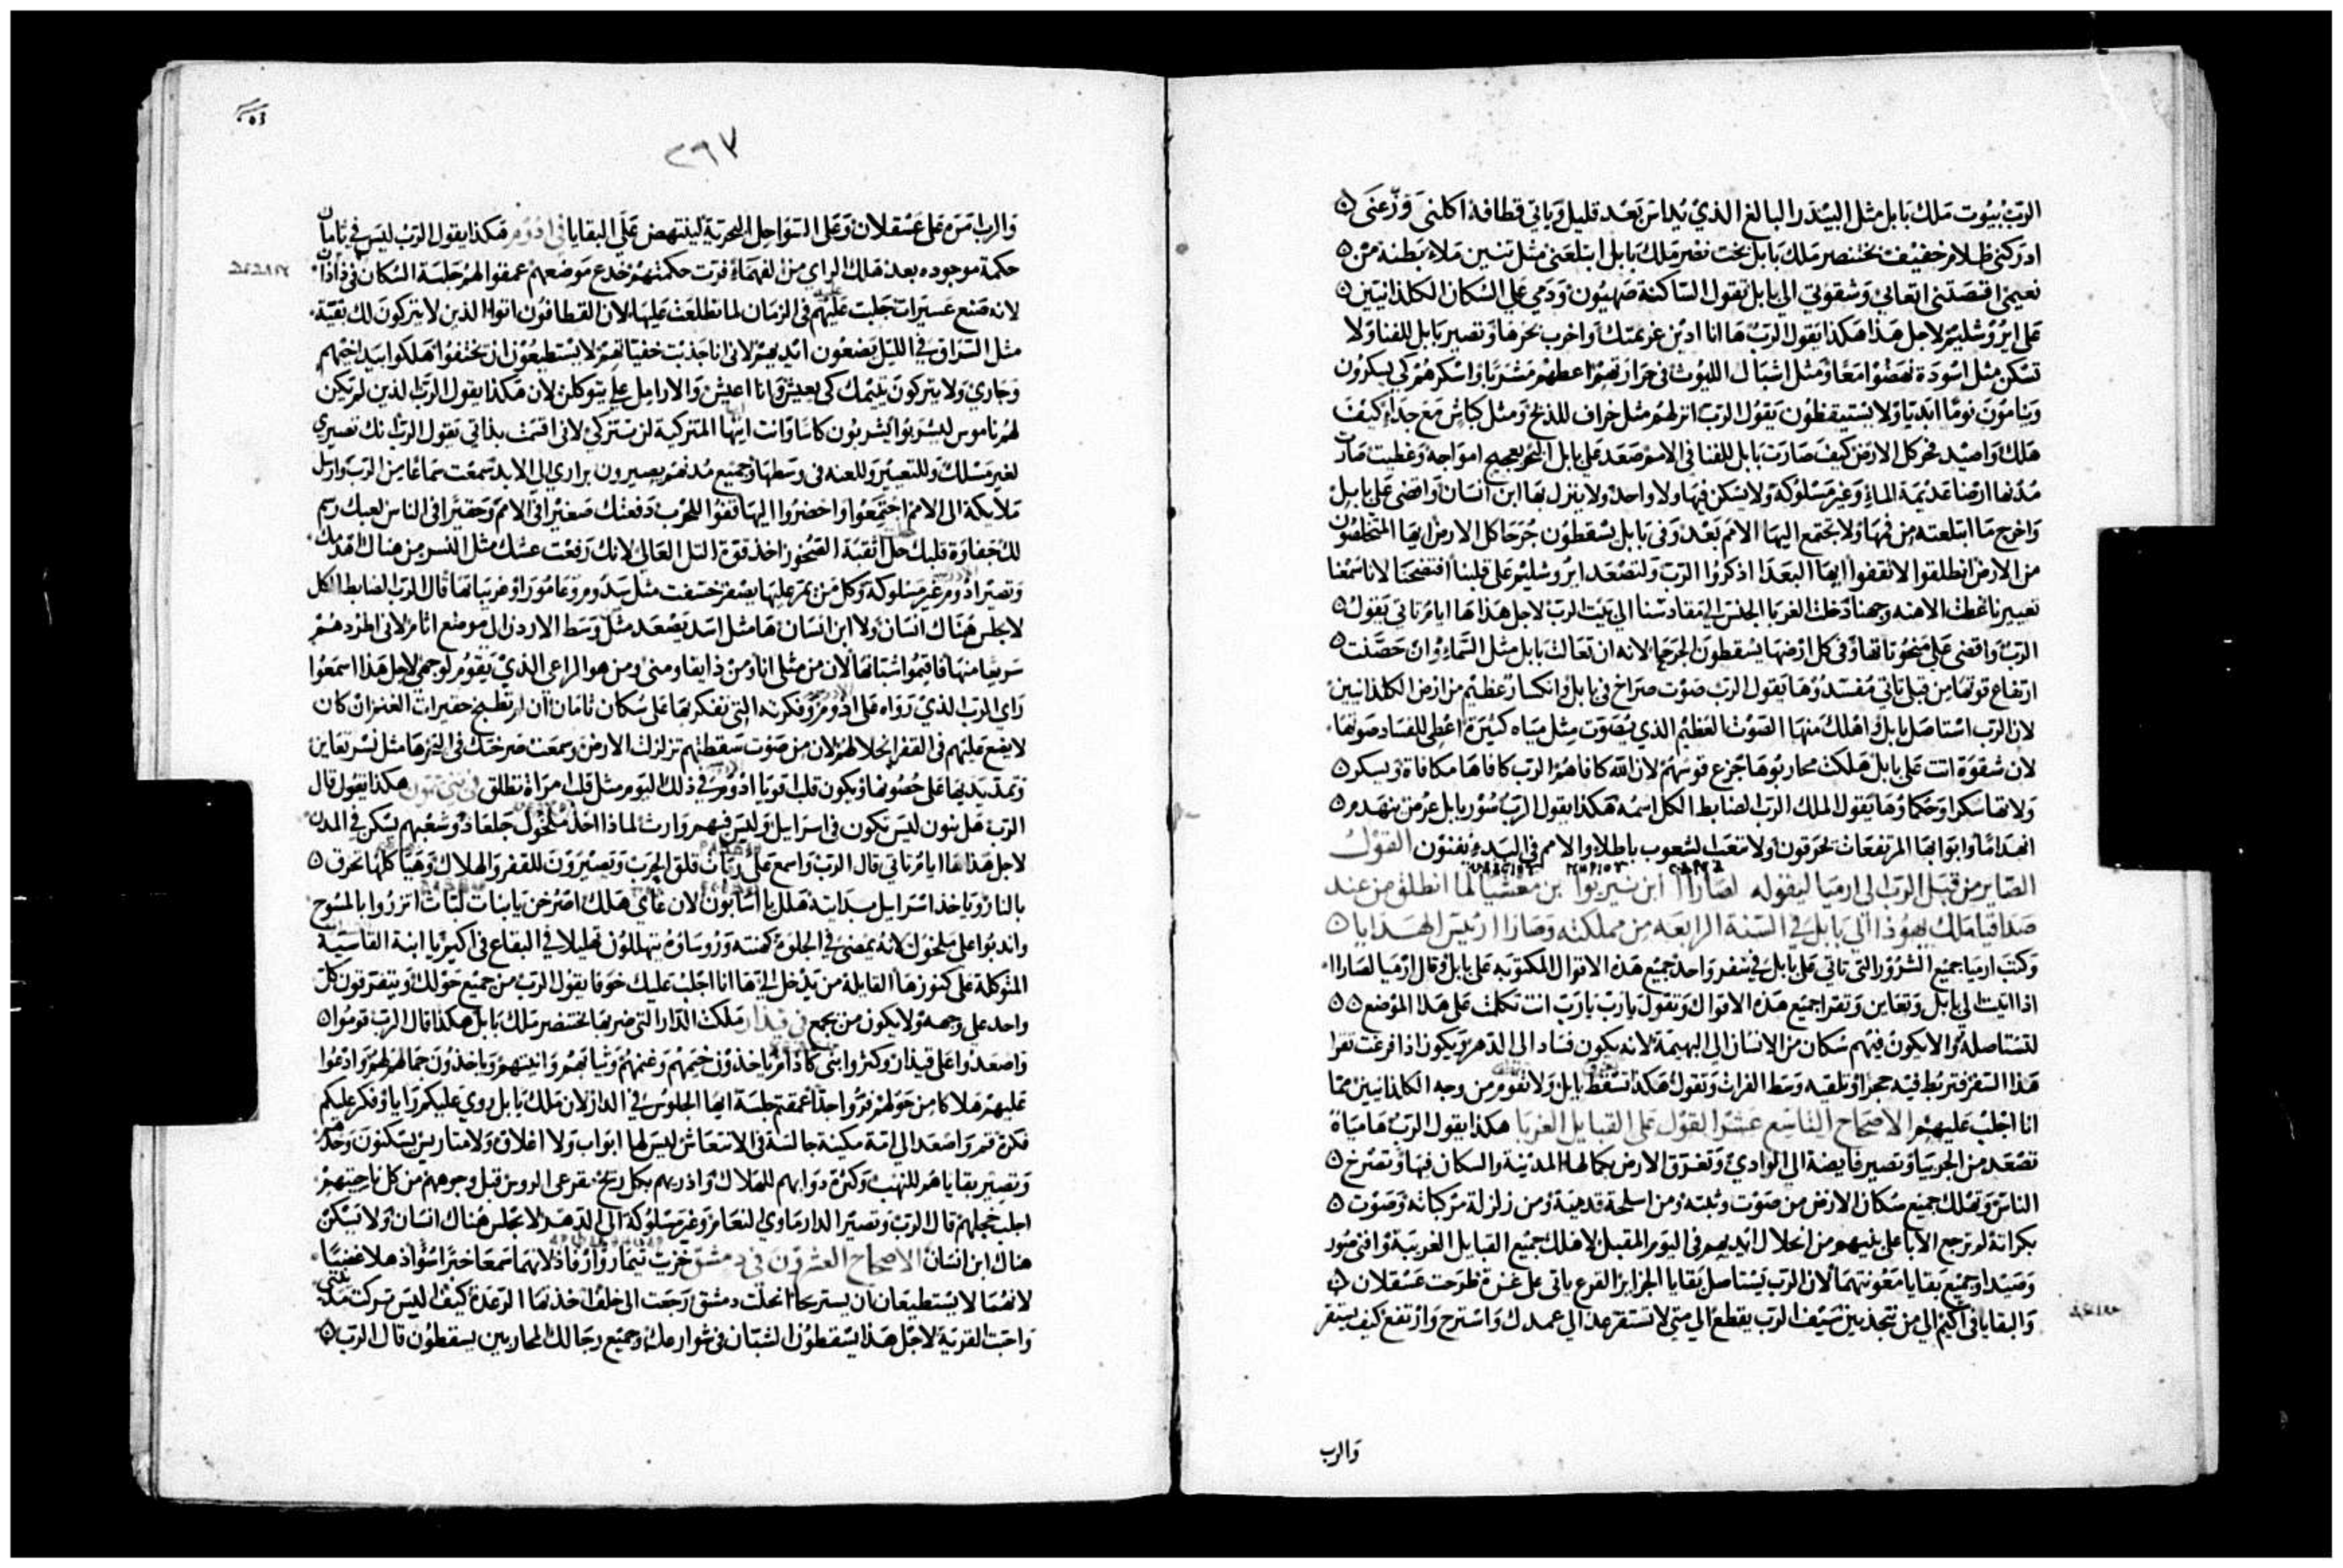 الرب بيوت ملك بابل مثل البيدر البالغ الذي يداس بعد قليل وياتي قطافه اكلني وزعني
ادركني ظلام خفيف بختنصر ملك بابل بخت نصر ملك بابل ابتلعني مثل تنين ملاء بطنه من
نعيمي اقتصتني اتعابي وشقوتي الي بابل تقول الساكنة صهيون ودمي علي السكان الكلدانيين
على ايروشليم لاجل هذا هكذا يقول الرب ها انا ادين غريمتك واخرب بحرها وتصير بابل للفنا ولا
تسكن مثل اسودة نهضوا معا ومثل اشبال الليوث في حرارتهم اعطهم مشربا واسكرهم كي يسكرون
وينامون نوما ابديا ولا يستيقظون يقول الرب انزلهم مثل خراف للذبح ومثل كباش مع جداء كيف
هلك واصيد فخر كل الارض كيف صارت بابل للفنا في الامم صعد علي بابل البحر بعجيج امواجه وغطيت صارت
مدنها ارضا عديمة الماء وغير مسلوكة ولا يسكن فيها ولا واحد ولا ينزل بها ابن انسان واقضي على بابل
واخرج ما ابتلعته من فمها ولا يجتمع اليها الامم بعد وفي بابل يسقطون جرحا كل الارض ايها المتخلصون
من الارض انطلقوا لا تقفوا ايها البعدا اذكروا الرب ولتصعد ايروشليم على قلبنا افتضحنا لانا سمعنا
تعييرنا غطت الاهنه وجهنا دخلت الغربا الجنس الي مقادسنا الي بيت الرب لاجل هذا ها ايام تاتي يقول
الرب واقضي على منحوتاتها وفي كل ارضها يسقطون الجرحا لانه ان تعالت بابل مثل السماء وان حصنت
ارتفاع قوتها من قبلي تاتي مفسدوها يقول الرب صوت صراخ في بابل وانكسار عظيم من ارض الكلدانيين
لان الرب استاصل بابل واهلك منها الصوت العظيم الذي يصوت مثل مياه كثيرة اعطي للفساد صوتها
لان شقوة اتت على بابل هلكت محاربوها جزع قوسهم لان الله كافاهم الرب كافاها مكافاة ويسكر
ولاتها سكرا وحكماوها يقول الملك الرب الضابط الكل اسمه هكذا يقول الرب سور بابل عرض ينهدم
انهداما وابوابها المرتفعات يحرقون ولا تتعب الشعوب باطلا والامم في البدء يفنون القول
الصاير من قبل الرب الي ارميا ليقوله لصاراا ابن نيريوا بن معشيا لما انطلق من عند
صداقيا ملك يهوذا الي بابل في السنة الرابعه من مملكته وصاراا رئيس الهدايا
وكتب ارميا جميع الشرور التي تاتي على بابل في سفر واحد جميع هذه الاقوال المكتوبه على بابل وقال ارميا لصاراا
اذا اتيت الي بابل وتعاين وتقرا جميع هذه الاقوال وتقول يا رب يا رب انت تكلمت على هذا الموضع
لتستاصله ولا يكون فيهم سكان من الانسان الي البهيمة لانه يكون فسادا الي الدهر ويكون اذا فرغت تقرا
هذا السفر فتربط فيه حجرا وتلقيه وسط الفرات وتقول هكذا تسقط بابل ولا تقوم من وجه الكلدانيين مما
انا اجلب عليهم الاصحاح التاسع عشر القول على القبايل الغربا هكذا يقول الرب ها مياه
تصعد من الجربيا وتصير فايضة الي الوادي وتغرق الارض بكمالها المدينة والسكان فيها وتصرخ
الناس وتهلك جميع سكان الارض من صوت وثبته ومن اسلحة قدميه ومن زلزلة مركباته وصوت
بكراته لم ترجع الابا على بنيهم من انحلال ايديهم في اليوم المقبل لاهلك جميع القبايل الغريبة وافني صور
وصيدا وجميع بقايا معونتهما لان الرب يستاصل بقايا الجزاير القرع ياتي على غزة طرحت عسقلان
والبقايا في اكيم الي متي تتجدبين سيف الرب يقطع الي متي لا تستقر هذا الي عمدك واستريح وارتفع كيف يستقر
والرب
٢٩٧
والرب امره على عسقلان وعلى السواحل البحرية لينتهض على البقايا في ادوم هكذا يقول الرب ليس في تامان
حكمة موجوده بعد هلك الراي من الفهماء فرت حكمتهم خدع موضعهم عمقوا لهم جلسة السكان في ذاذان
لانه صنع عسيرات جلبت عليهم في الزمان لما تطلعت عليها لان القطافون اتوا الذين لا يتركون لك بقية
مثل السراق في الليل يضعون ايديهم لاني انا جذبت خفياتهم لا يستطيعون ان يختفوا هلكوا بيد اخيهم
وجاري ولا يتركون يتيمك كي يعيش وانا اعيش والارامل علي يتوكلن لان هكذا يقول الرب الذين لم يكن
لهم ناموس ليشربوا يشربون كاسا وانت ايتها المتركية لن تتركي لاني اقسمت بذاتي يقول الرب انك تصيري
لغير مسلك وللتعيير وللعنه في وسطها وجميع مدنهم يصيرون براري الي الابد سمعت سماعا من الرب وارسل
ملايكة الى الامم اجتمعوا واحضروا اليها قفوا للحرب دفعتك صغيرا في الامم وحقيرا في الناس لعبك رسم
لك جفاوة قلبك حل اثقبة الصخور اخذ قوة التل العالي لانك رفعت عشك مثل النسر من هناك اهدمك
وتصير ادوم غير مسلوكة وكل من يمر عليها يصفر خسفت مثل سدوم وعامورا وقريباتها قال الرب الضابط الكل
لا يجلس هناك انسان ولا ابن انسان ها مثل اسد يصعد مثل وسط الاردن الي موضع اثام لاني اطردهم
سريعا منها فاقيموا شبانها لان من مثلي انا ومن ذا يقاومني ومن هو الراعي الذي يقوم لوجهي لاجل هذا اسمعوا
راي الرب الذي رواه على ادوم وفكرته التي تفكر بها على سكان تامان ان لم تطبخ حقيرات الغنم ان كان
لا يقع عليهم في القفر انحلالهم لان من صوت سقطتهم تزلزلت الارض وسمعت صرختك في البحر ها مثل نسر تعاين
وتمد يديها على حصونها ويكون قلب اقويا ادوم في ذلك اليوم مثل قلب امراة تطلق في بني عمون هكذا يقول قال
الرب هل بنون ليس تكون في اسراييل وليس فيهم وارث لماذا اخذ ملخول جلعاد وشعبهم يسكن في المدن
لاجل هذا ها ايام تاتي قال الرب واسمع على ربات قلق الحرب وتصيرون للقفر والهلاك وهياكلها تحرق
بالنار وياخذ اسرايل بدايته هلل يا اسابون لان غاي هلك اصرخن يا بنات لبات اتزروا بالمسوح
واندبوا على ملخول لانه يمضي في الجلوة كهنته وروساؤه تتهللون تهليلا في البقاع في اكيم يا ابنة القاسية
المتوكلة على كنوزها القايلة من يدخل الي ها انا اجلب عليك خوفا يقول الرب من جميع حولك ويتفرقون كل
واحد على وجهه ولا يكون من يجمع في قيدار ملكت الدار التي ضربها بختنصر ملك بابل هكذا قال الرب قوموا
واصعدوا على قيدار وكثروا بني كادام ياخذون خيمهم وغنمهم وثيابهم وانيتهم وياخذون جمالهم لهم وادعوا
عليهم هلاكا من حولهم فروا جدا عمقتم جلسة ايها الجلوس في الدار لان ملك بابل روي عليكم رايا وفكر عليكم
فكرة قم واصعد الي امة مكينة جالسة في الانتعاش ليس لها ابواب ولا اغلاق ولا متاريس يسكنون وحدهم
وتصير بقاياهم للنهب وكثرة دوابهم للهلاك واذريهم بكل ريح مقرعي الروس قبل وجوههم من كل ناحيتهم
اجلب خجلهم قال الرب وتصير الدار ماوي للنعام وغير مسلوكة الى الدهر لا يجلس هناك انسان ولا يسكن
هناك ابن انسان الاصحاح العشرون في دمشق خزيت تيمار وارفاد لانهما سمعا خبرا سوا ذهلا غضبا
لانهما لا يستطيعان ان يستريحا انحلت دمشق رجعت الى خلف اخذتها الرعدة كيف ليس تركت مدينتي
واحبت القرية لاجل هذا يسقطون الشبان في شوارعك وجميع رجالك المحاربين يسقطون قال الرب